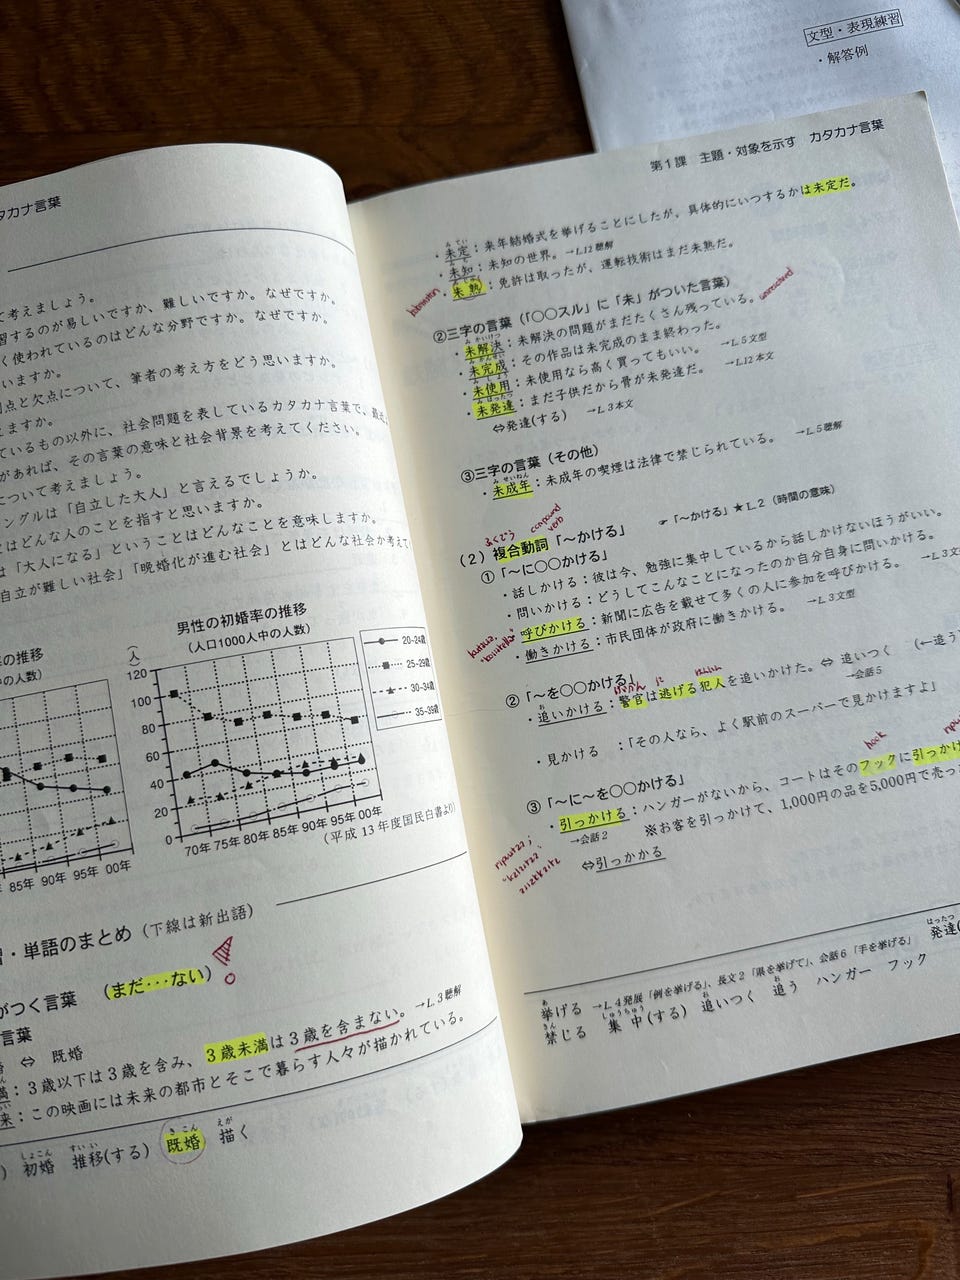 文型・表現練習
・解答例
タカナ言葉
て考えましょう。
習するのが易しいですか、難しいですか。なぜですか。
く使われているのはどんな分野ですか。なぜですか。
いますか。
点と欠点について、筆者の考え方をどう思いますか。
えますか。
ているもの以外に、社会問題を表しているカタカナ言葉で、最近
があれば、その言葉の意味と社会背景を考えてください。
について考えましょう。
ングルは「自立した大人」と言えるでしょうか。
とはどんな人のことを指すと思いますか。
は「大人になる」ということはどんなことを意味しますか。
自立が難しい社会」「晩婚化が進む社会」とはどんな社会か考えて
の推移
中の人数)
85年 90年 95年 00年
男性の初婚率の推移
(人口1000人中の人数)
(人)
120
100
80
60
40
20
0
70年 75年 80年 85年 90年 95年 00年
20-24歳
25-29歳
30-34歳
35-39歳
(平成 13 年度国民白書より)
・単語のまとめ(下線は新出語)
がつく言葉 (まだ…ない)
言葉
⇔ 既婚
満:3歳以下は3歳を含み、3歳未満は3歳を含まない。→L.3聴解
来:この映画には未来の都市とそこで暮らす人々が描かれている。
しょこん すいい きこん えが
初婚 推移(する) 既婚 描く
第1課 主題・対象を示す カタカナ言葉
みてい
・未定:来年結婚式を挙げることにしたが、具体的にいつするかは未定だ。
みち
・未知:未知の世界。→L.12聴解
みじゅく
・未熟:免許は取ったが、運転技術はまだ未熟だ。
②三字の言葉(「〇〇スル」に「未」がついた言葉)
unresolved
みかいけつ
・未解決:未解決の問題がまだたくさん残っている。
みかんせい
・未完成:その作品は未完成のまま終わった。
みしよう
・未使用:未使用なら高く買ってもいい。 →L.5文型
みはったつ
・未発達:まだ子供だから骨が未発達だ。 →L.12本文
⇔発達(する) →L.3本文
③三字の言葉(その他)
みせいねん
・未成年:未成年の喫煙は法律で禁じられている。 →L.5聴解
ふくどう compound verb
(2)複合動詞「〜かける」 ☞「〜かける」★L.2(時間の意味)
①「〜に〇〇かける」
・話しかける:彼は今、勉強に集中しているから話しかけないほうがいい。
・問いかける:どうしてこんなことになったのか自分自身に問いかける。
・呼びかける:新聞に広告を載せて多くの人に参加を呼びかける。 →L.3文
・働きかける:市民団体が政府に働きかける。 →L.3文型
②「〜を〇〇かける」
けいかん に はんにん
お
・追いかける:警官は逃げる犯人を追いかけた。⇔ 追いつく (←追う)
→会話5
・見かける :「その人なら、よく駅前のスーパーで見かけますよ」
③「〜に〜を〇〇かける」
hook
・引っかける:ハンガーがないから、コートはそのフックに引っかけ
→会話2 ※お客を引っかけて、1,000円の品を5,000円で売っ
⇔引っかかる
あ
挙げる →L.4発展「例を挙げる」、長文2「眼を挙げて」、会話6「手を挙げる」
はったつ
発達(
きん しゅうちゅう お お
禁じる 集中(する) 追いつく 追う ハンガー フック